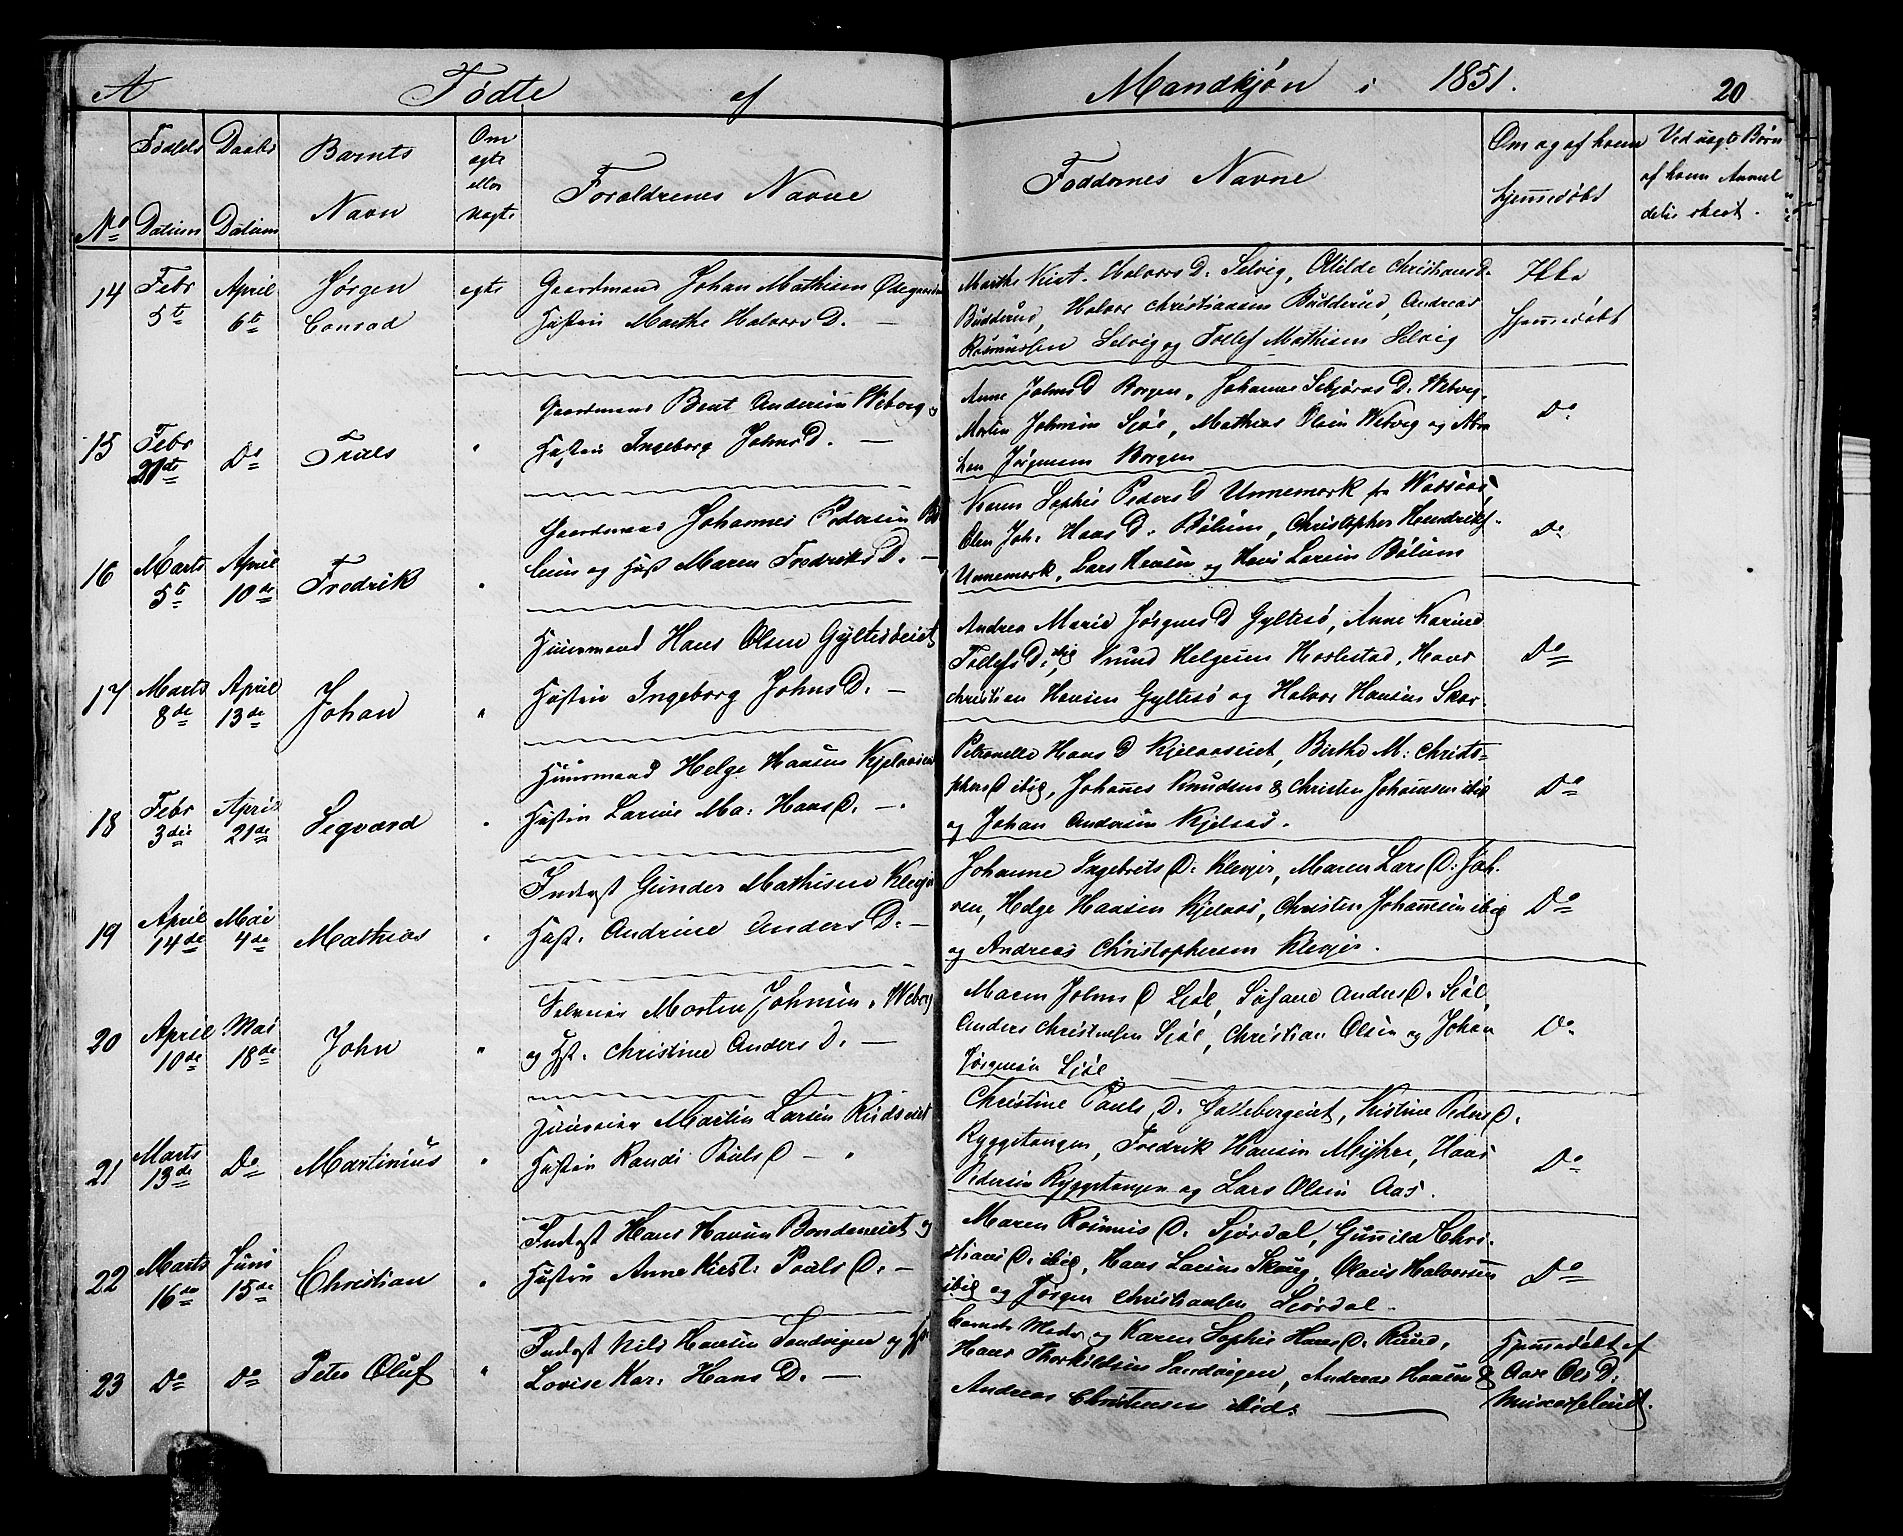 A Fødte af Mandkjøn i 1851. 20
No Fødsels Datum Daabs Datum Barnets Navn Om ægte eller uægte Forældrenes Navne Faddernes Navne Om og af hvem hjemmedøbt Ved uægte Børn af hvem Anmeldelse skeet.
14 Febr 5te April 6te Jørgen Conrad ægte
Gaardmand Johan Mathisen
Hustru Marthe Halvors D. —
Marthe Kirst. Halvors D. Selvig, Olilde Christians D.
Budderud, Halvor Christiansen Budderud, Andreas
Rasmussen Selvig og Tollef Mathisen Selvig
Ikke
hjemmedøbt
15 Febr Do Truls "
Gaardmand Bent Andersen Webveg
Hustru Ingeborg Johns D. —
Anne Johns D Borgen, Johanne D. Webveg,
Morten Johnsen Sjøl, Mathias Olsen Webveg og Abra
ham Jørgensen Borgen
Do
16 Marts 5te April 10de Fredrik "
Gaardmand Johannes Pedersen Bø
lum og Hust Maren Fredriks D. —
Karen Sophie Peders D Unnemark fra
Olea Joh. Hans D. Bølum, Christopher Hendriks.
Unnemark, Lars Hansen og Hans Larsen Bølum
Do
17 Marts 8de April 13de Johan "
Huusmand Hans Olsen Gyltesøeiet
Hustru Ingeborg Johns D. —
Andrea Marie Jørgens D Gyltesø, Anne Karine
Tollefs D. ibig, Trund Helgesen Haslestad, Hans
Christian Hansen Gyltesø og Halvor Hansen
Do
18 Febr 3die April 21de Segvard "
Huusmand Helge Hansen Kjelaaseiet
Hustru Larine Ma: Hans D. —
Petronelle Hans D Kjelaaseiet, Birthe M: Christo=
phers D ibig, Johannes Knudsen & Christen Johannsen ibig
og Johan Andersen Kjelaas.
Do
19 April 14de Mai 4de Mathias "
Inderst Gunder Mathisen Klevjer
Hust. Andrine Anders D. —
Johanne Ingebrets D. Klevjer, Maren Lars D.
Helge Hansen Kjelaas, Christen Johannsen ibig
og Andreas Christophersen Klevjer.
Do
20 April 10de Mai 18de John "
Selveier Morten Johnsen Webveg
og Hst. Christine Anders D. —
Maren Johns D Sjøl, Anders D. Sjøl,
Anders Christensen Sjøl, Christian Olsen og Johan
Jørgensen Sjøl.
Do
21 Marts 13de Do Martinius "
Martin Larsen Rudseiet
Hustru Randi Pauls D — "
Christine Pauls D. Kristine Peders D.
Ryggetangen, Fredrik Hansen Hans
Pedersen Ryggetangen og Lars Olsen Aas.
Do
22 Marts 16de Juni 15de Christian "
Inderst Hans Hansen Bondeneiet og
Hustru Anne Kirst. Pouls D. —
Maren D. Sjørdal, Gunnild Chri-
stians D. ibig, Hans Larsen Skoug, Olaus Halvorsen
ibig og Jørgen Christiansen Sjørdal.
Do
23 Do Do Peter Oluf "
Inderst Nils Hansen Sandvigen og
Lovise Kar. Hans D. —
barnets Moder og Karen Sophie Hans D. Ruud,
Hans Thorkildsen Sandvigen, Andreas Hansen &
Andreas Christensen ibid. —
Hjemmedøbt af
Ols D.